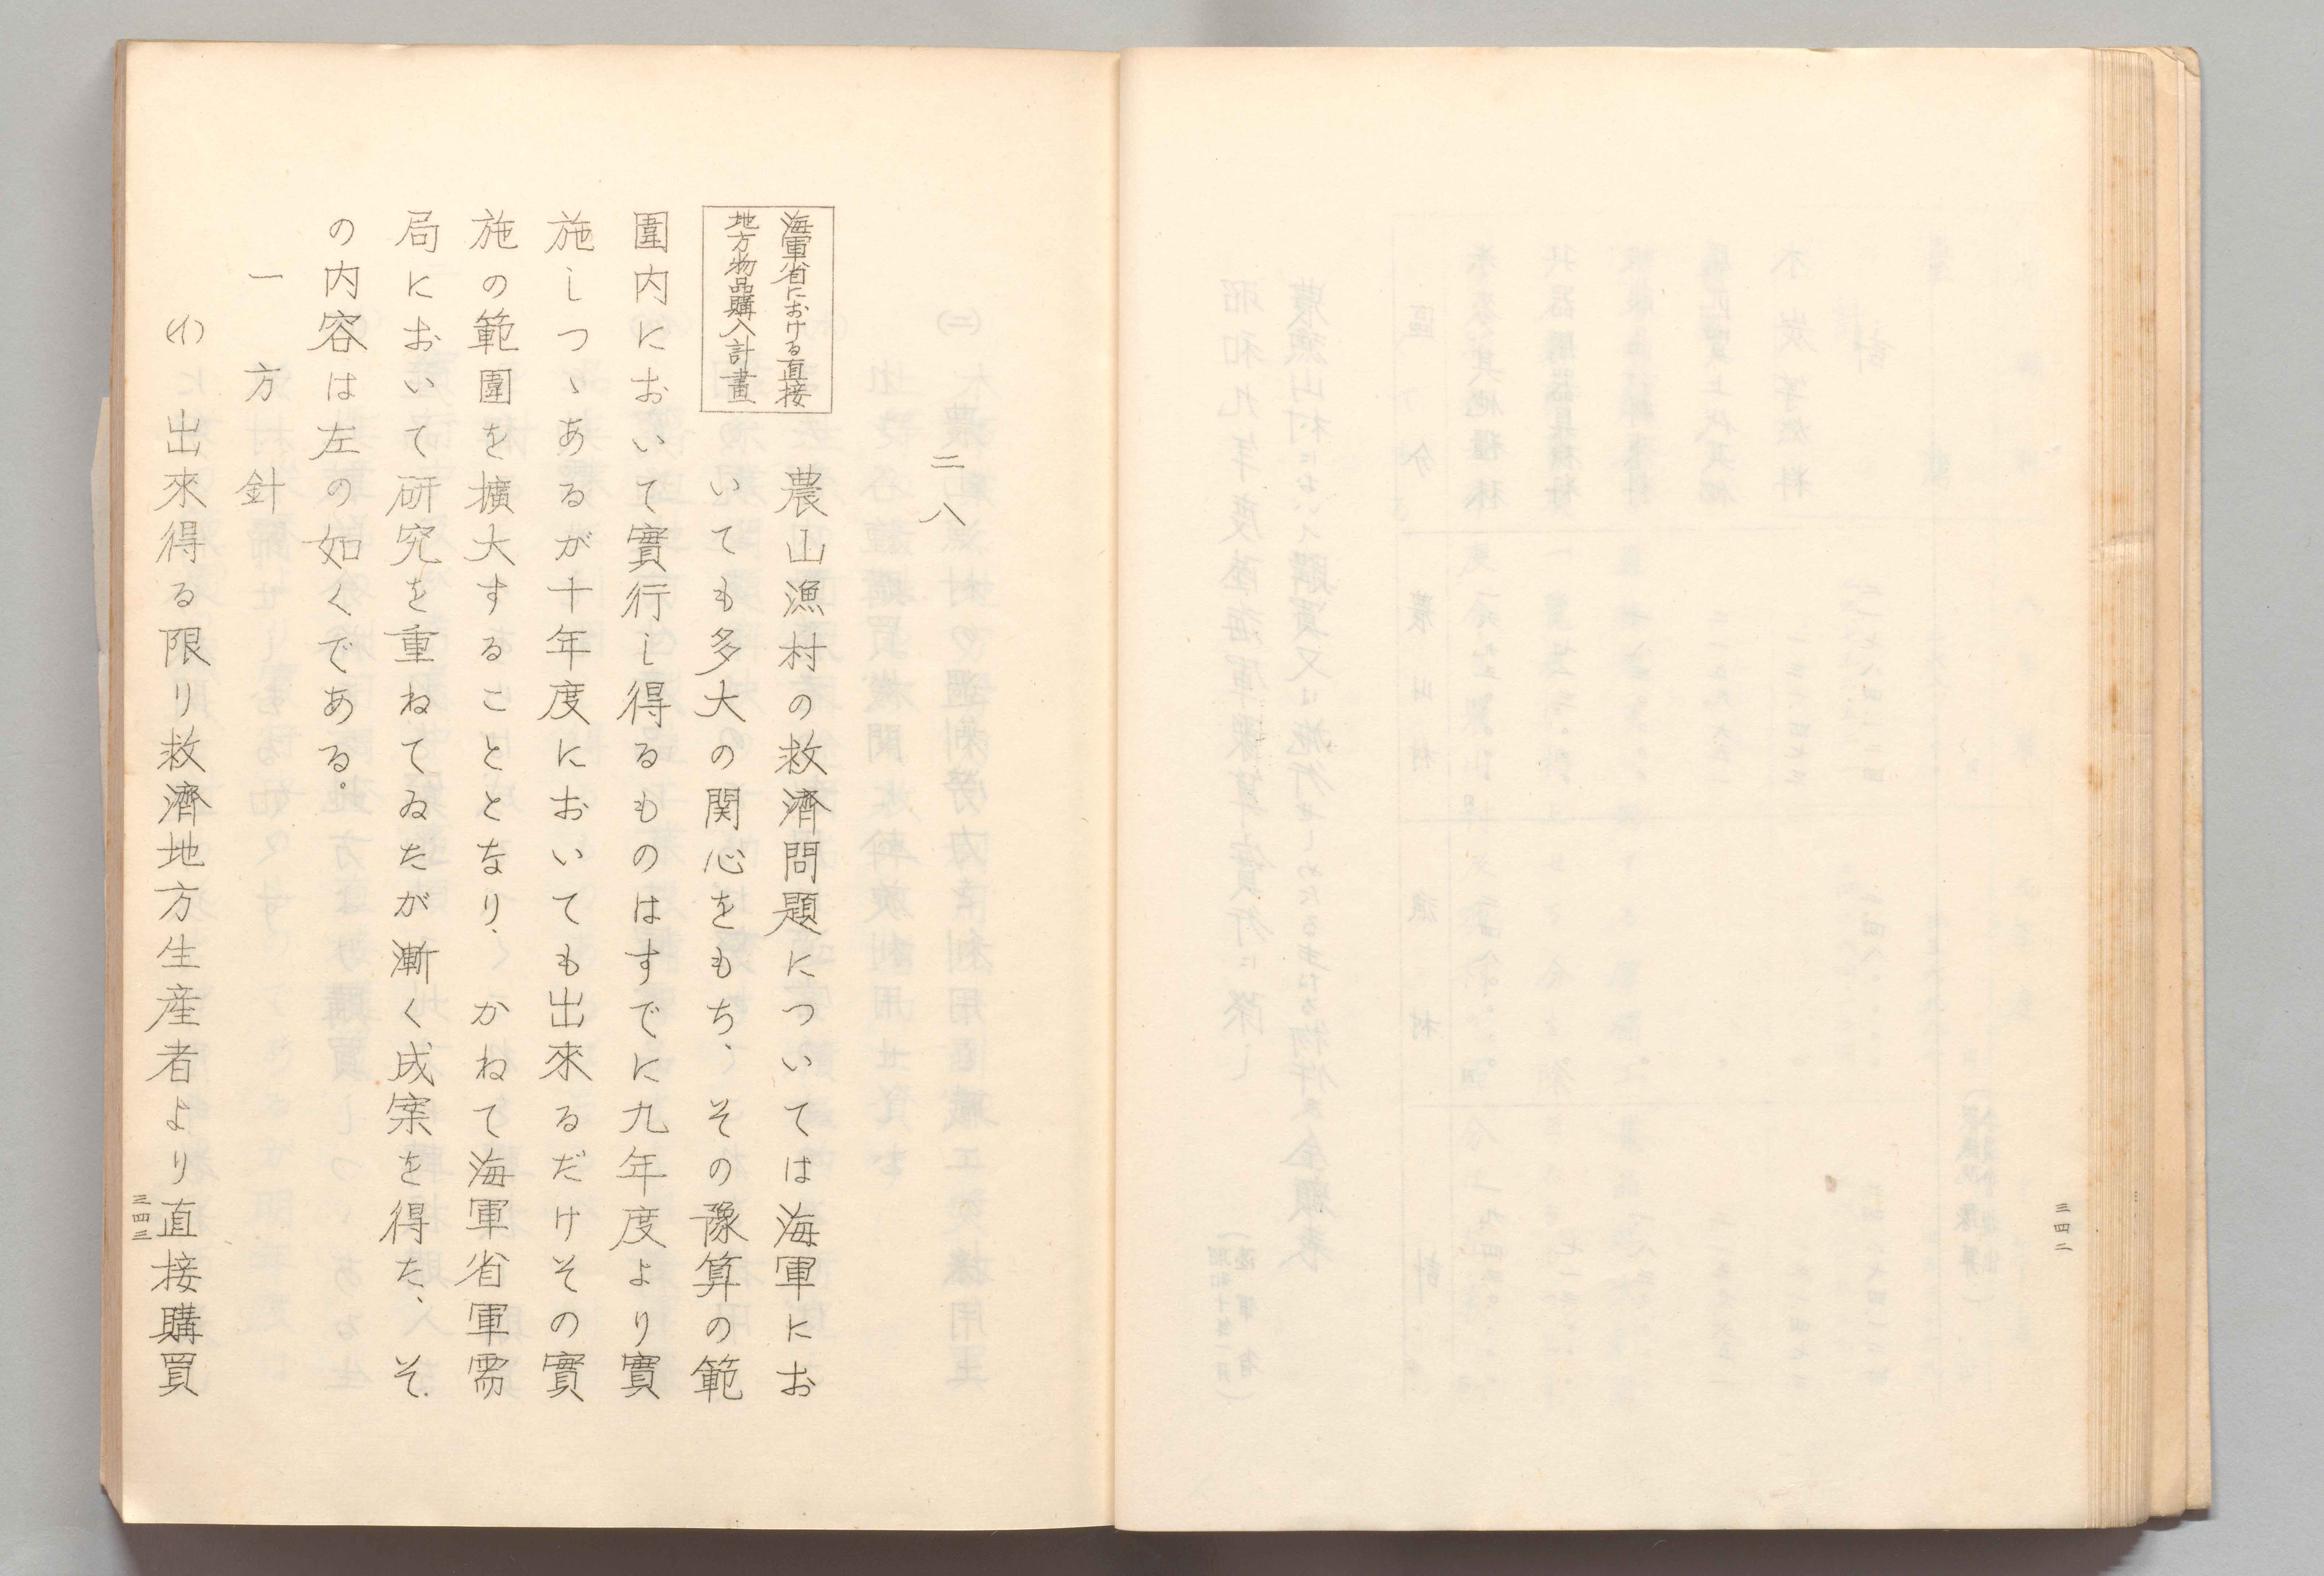 三四二
二八
海軍省における直接
地方物品購入計畫
農山漁村の救濟問題については海軍にお
いても多大の関心をもち、その豫算の範
圍内において實行し得るものはすでに九年度より實
施しつゝあるが十年度においても出來るだけその實
施の範圍を擴大することとなり、かねて海軍省軍需
局において研究を重ねてゐたが漸く成案を得た、そ
の内容は左の如くである。
一方針
(イ)出來得る限り救濟地方生産者より直接購買
三四三